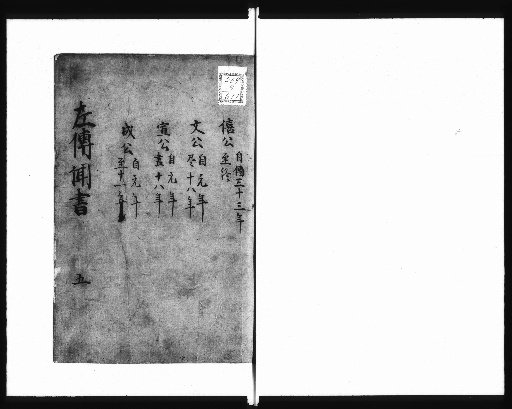 僖公 自僖三十三年
至終
文公 自元年
尽十八年
宣公 自元年
尽十八年
成公 自元年
至十一年
左傳聞書 五